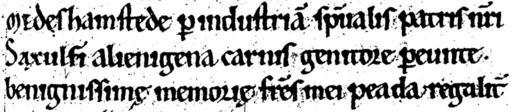 Medeshamstede ꝑ industriã sp̃ualis patris nr̃i
Saxulfi alienigena carnis genitore ꝑeunte.
benignissimę memorię fr̃es mei peada regalit̃